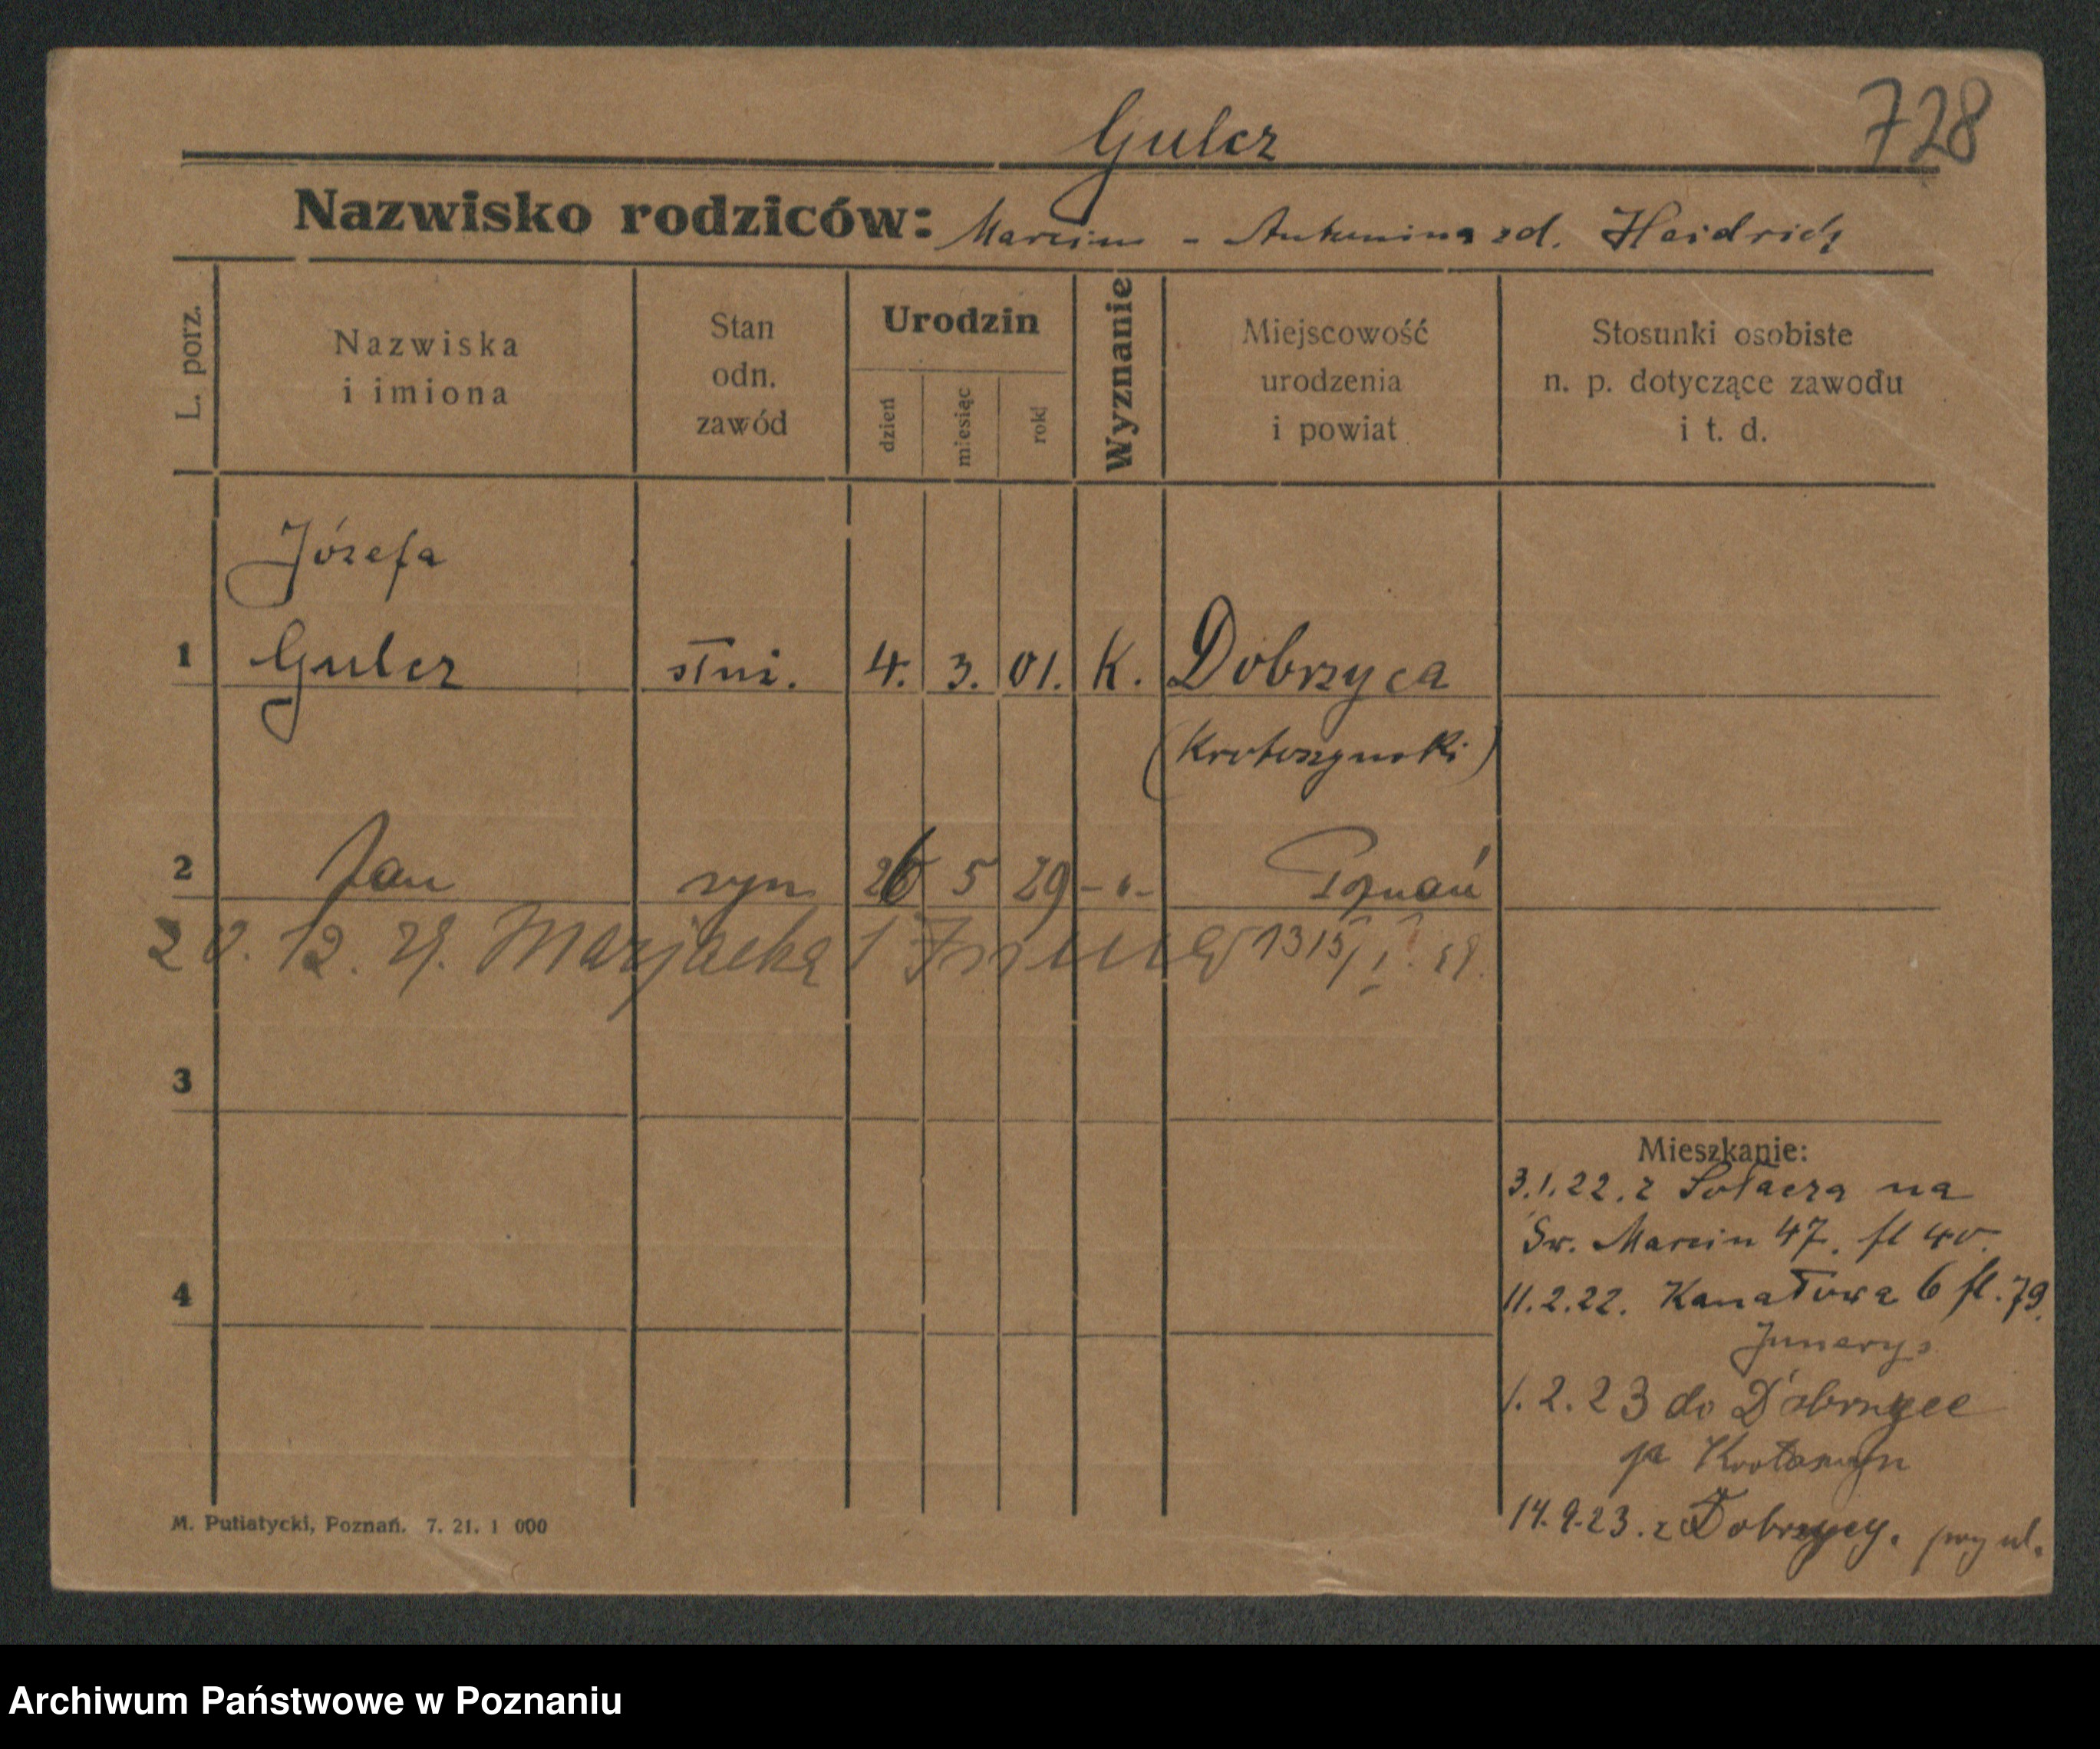 728
Gulcz
Nazwisko rodziców: Marcin - Antonina zd. Heidrich
L. porz.
Nazwiska
i imiona
Stan
odn.
zawód
Urodzin
dzień
miesiąc
rok
Wyznanie
Miejscowość
urodzenia
i powiat
Stosunki osobiste
n. p. dotyczące zawodu
i t. d.
Józefa
1 Gulcz służ. 4. 3. 01. K. Dobrzyca
(Krotoszynski)
2 Jan syn 26 5 29 - " - Poznań
20. 12. 29. 1315/I. 29.
3
4
Mieszkanie:
3.1.22. z Sołacza na
Św. Marcin 47. fl 40.
11.2.22. Kanałowa 6 fl. 79.
1.2.23 do Dobrzyce
14.9.23. z Dobrzycy.
M. Putiatycki, Poznań. 7. 21. 1 000
Archiwum Państwowe w Poznaniu